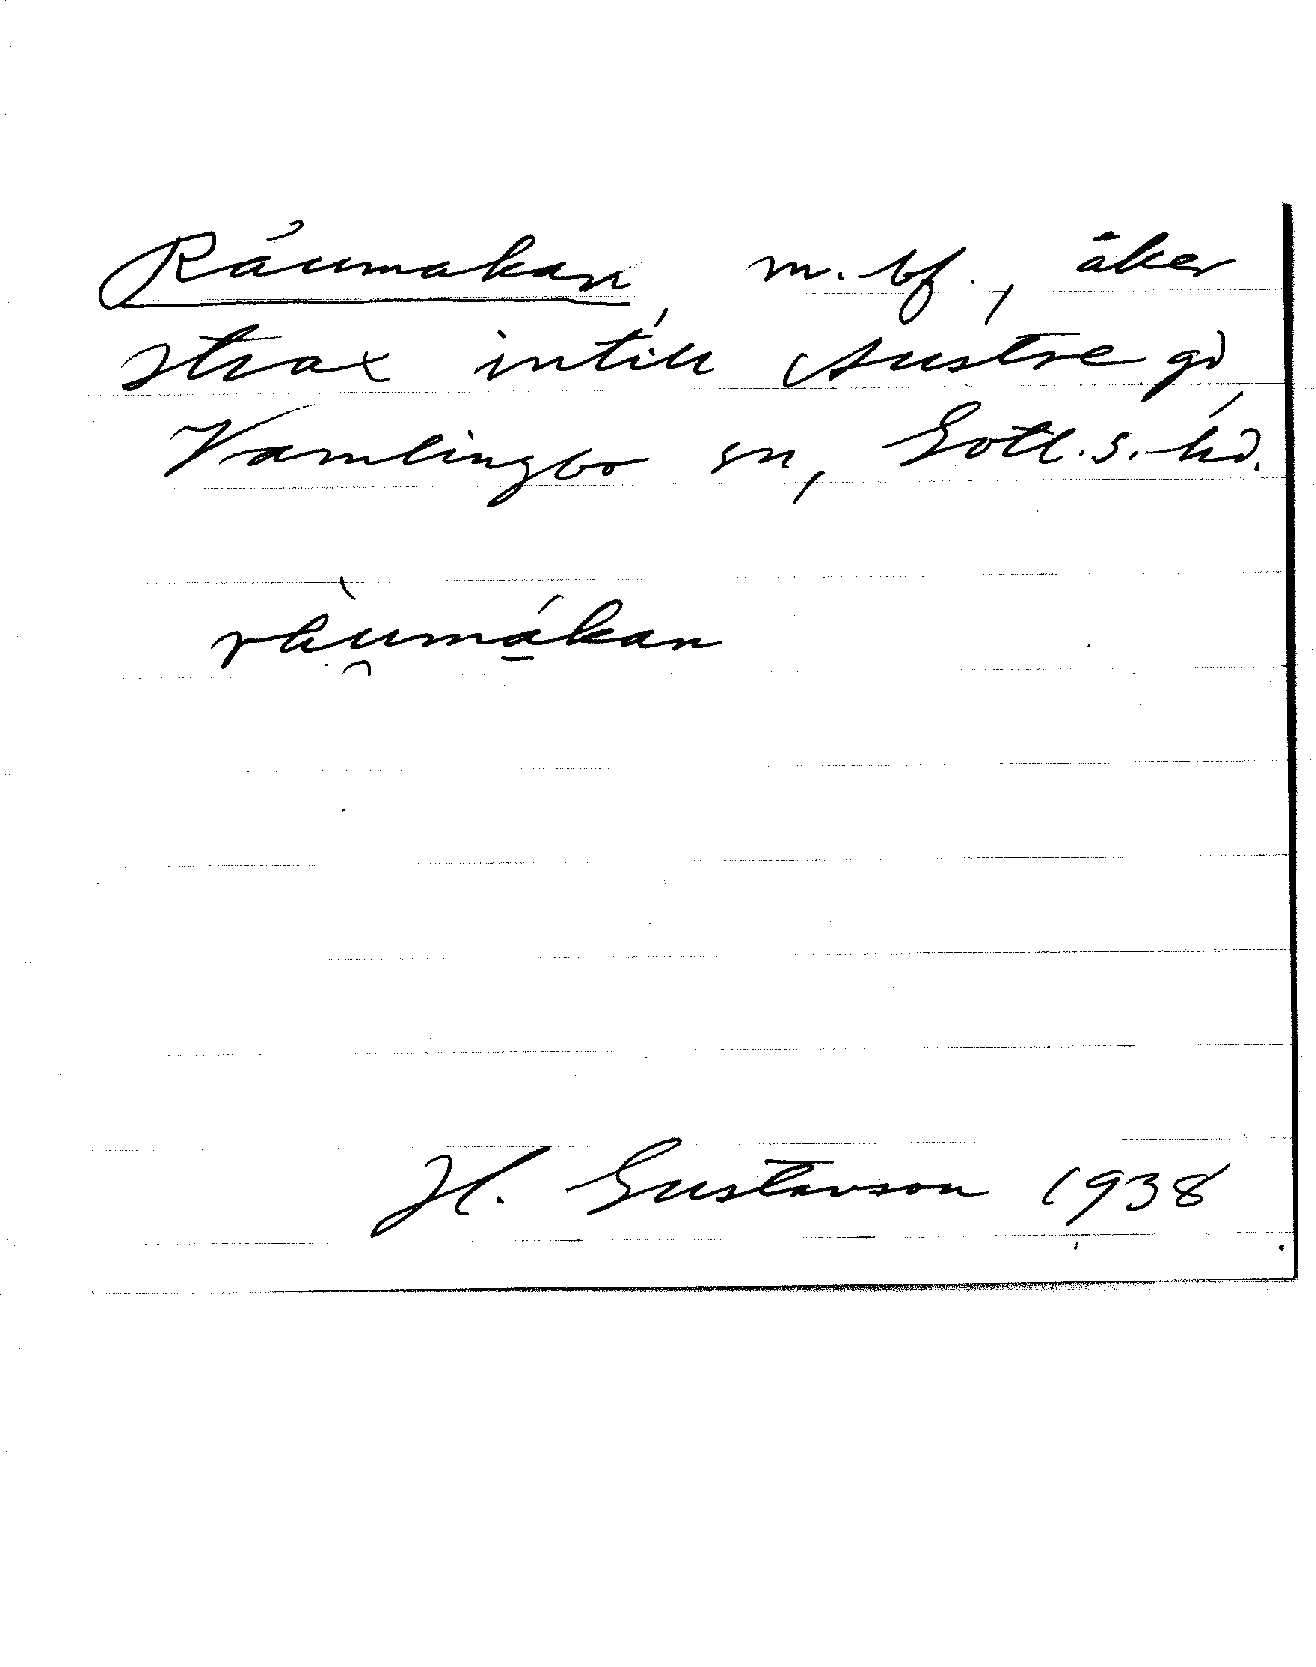 Råumakan, m. bf., åker
strax intill Austre gd,
Vamlingbo sn, Gotl. s. hd.
råumákan
H. Gustavson 1938